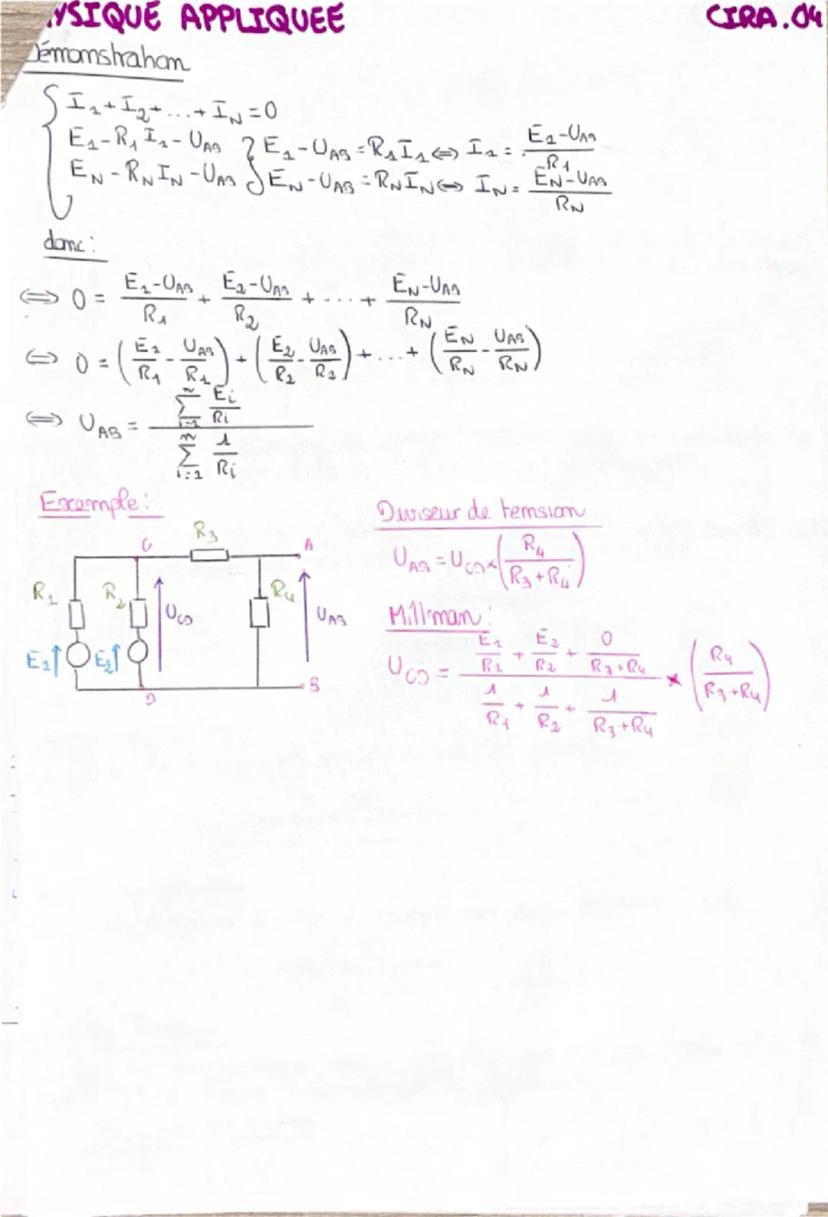 YSIQUE APPLIQUEE
CIRA.04
Démonstration
I1 + I2 + ... + IN = 0
E1 - R1 I1 - UAB } E1 - UAB = R1 I1 ⇔ I1 = (E1 - UAB)/R1
EN - RN IN - UAB } EN - UAB = RN IN ⇔ IN = (EN - UAB)/RN
donc :
⇔ 0 = (E1 - UAB)/R1 + (E2 - UAB)/R2 + ... + (EN - UAB)/RN
⇔ 0 = (E1/R1 - UAB/R1) + (E2/R2 - UAB/R2) + ... + (EN/RN - UAB/RN)
⇔ UAB = (∑ i=1 n Ei/Ri) / (∑ i=1 n 1/Ri)
Exemple :
C R3 A
R1 R2 UCD R4 UAB
E1 E2
D B
Diviseur de tension
UAB = UCD × (R4/(R3+R4))
Millman :
UCD = (E1/R1 + E2/R2 + 0/(R3+R4)) / (1/R1 + 1/R2 + 1/(R3+R4)) × (R4/(R3+R4))